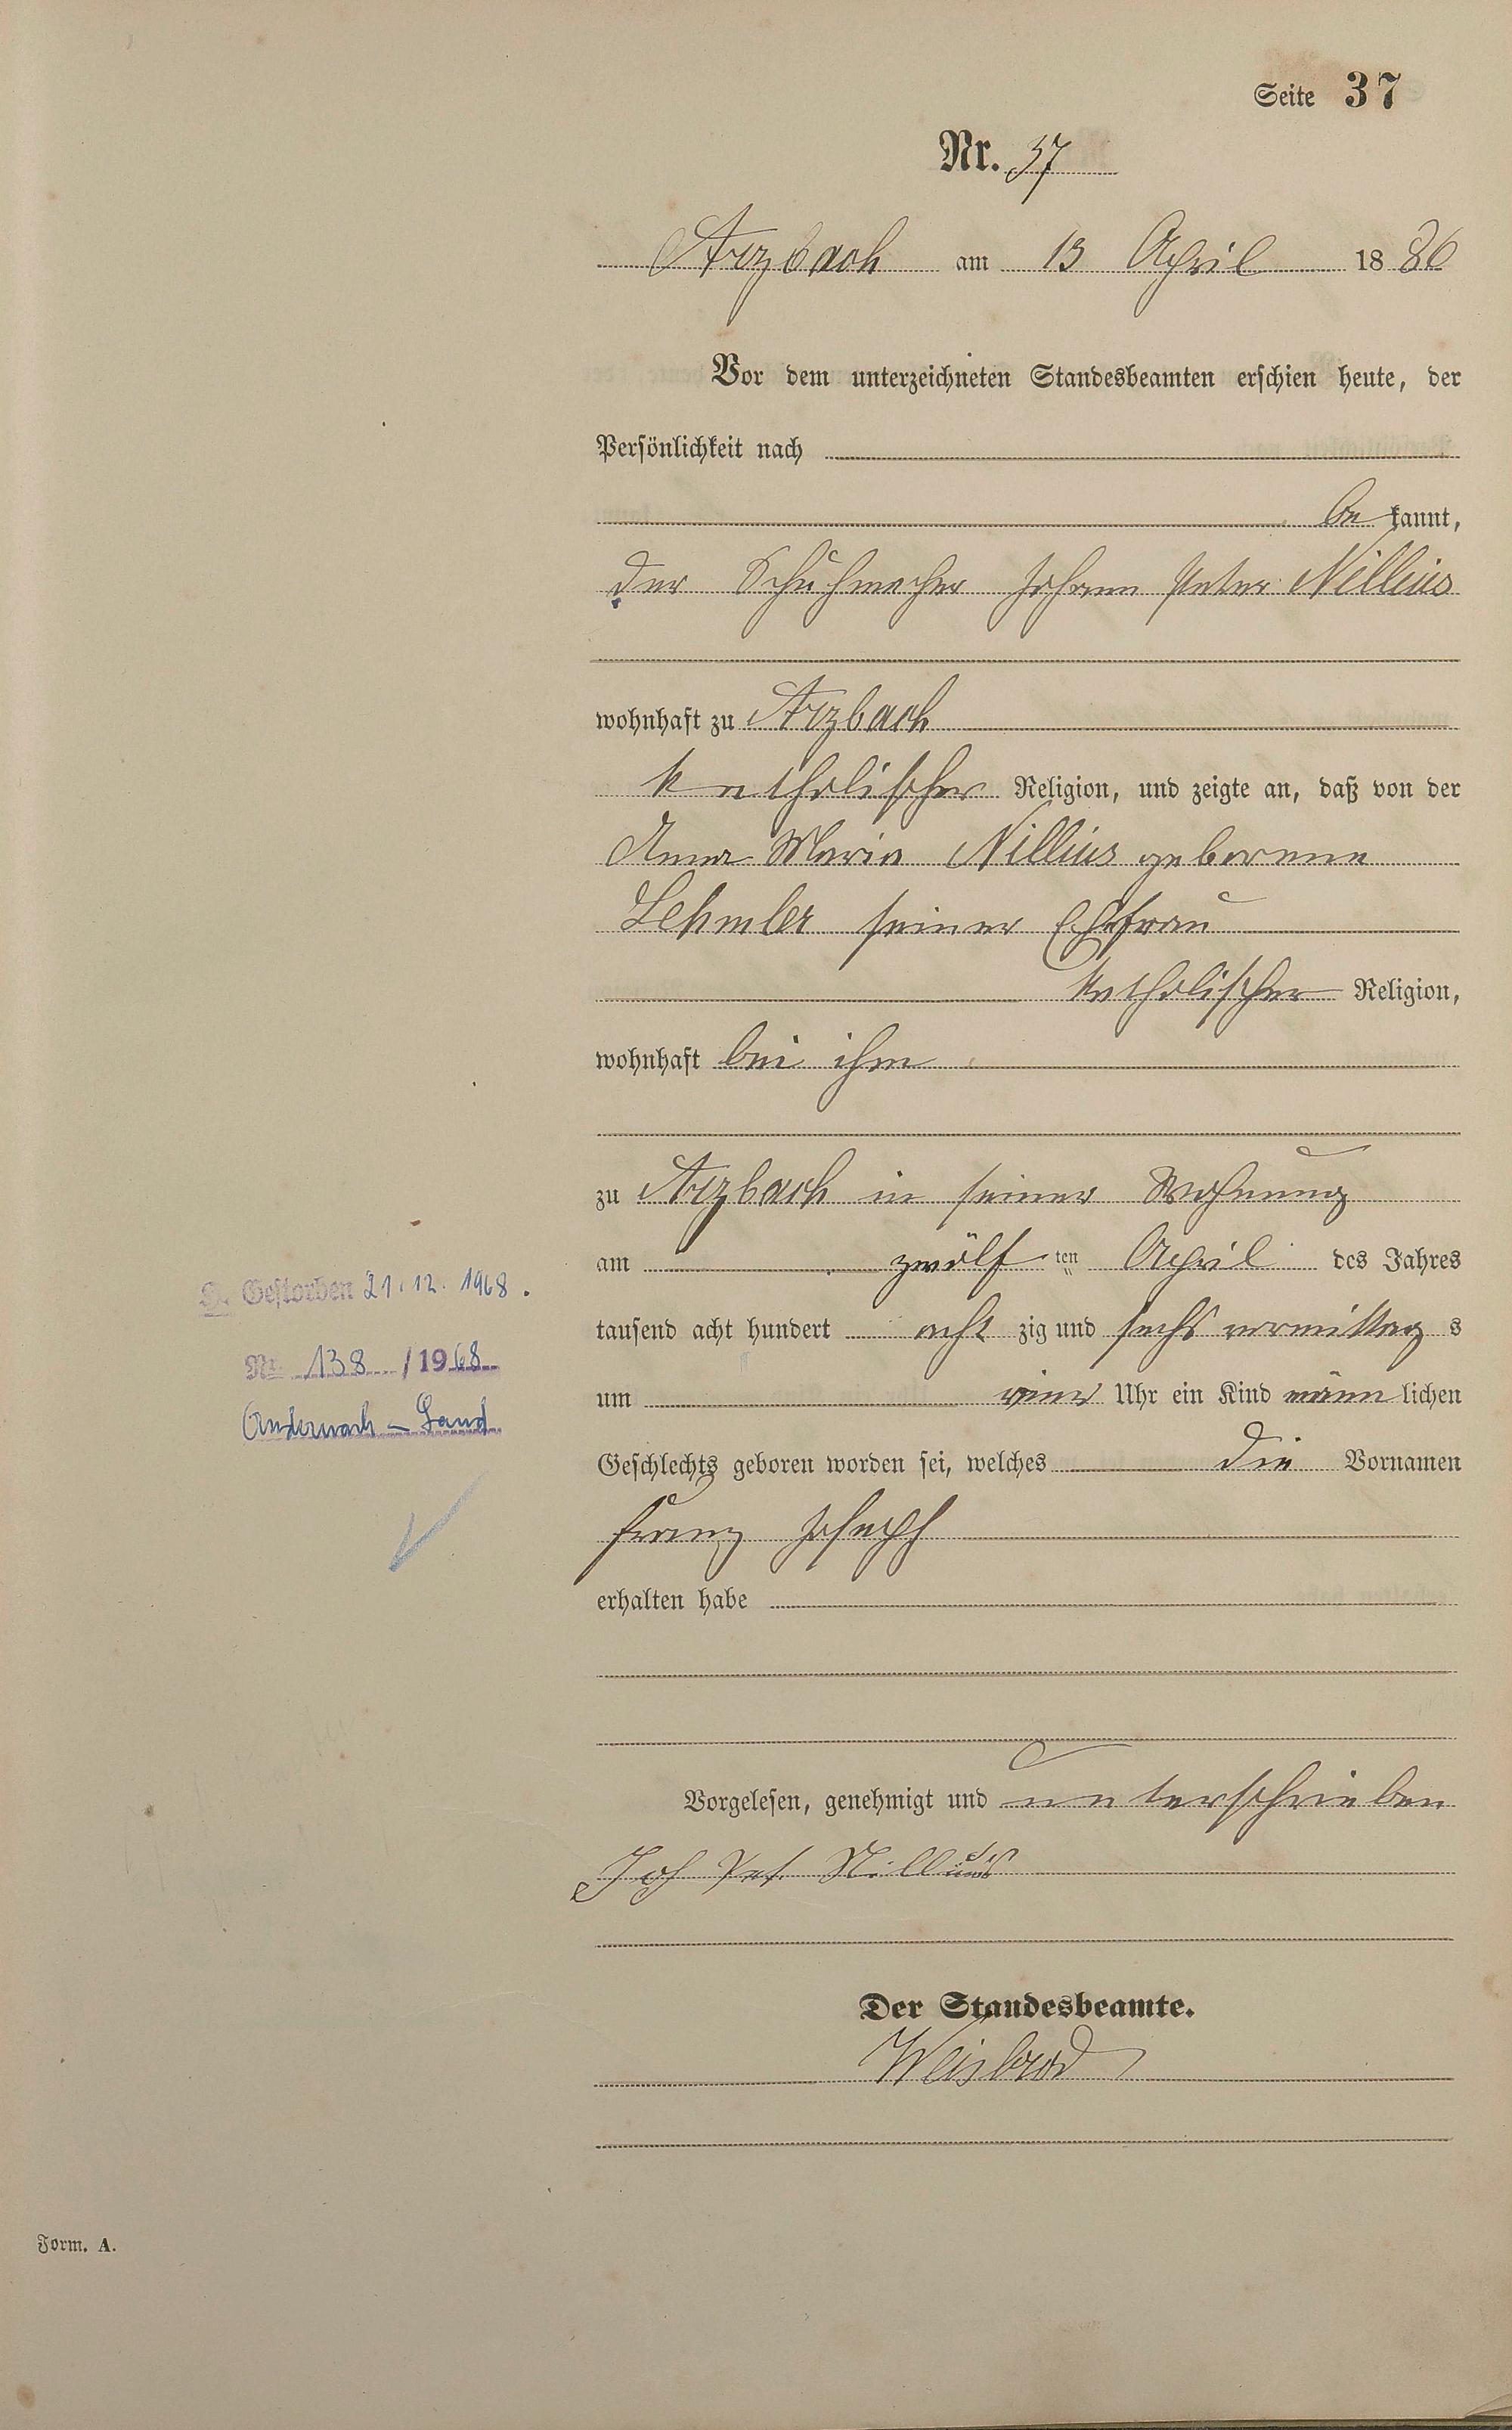 Seite 37
Nr. 37
Arzbach am 13 April 1886
Vor dem unterzeichneten Standesbeamten erschien heute, der
Persönlichkeit nach
be kannt,
der Schuhmacher Johann Peter Nillius
wohnhaft zu Arzbach
katholischer Religion, und zeigte an, daß von der
Anna Maria Nillius geborenne
Lehmler seiner Ehefrau
katholischer Religion,
wohnhaft bei ihm
zu Arzbach in seiner Wohnung
am zwölf ten April des Jahres
tausend acht hundert acht zig und sechs vormittag s
um Uhr ein Kind männ lichen
Geschlechts geboren worden sei, welches die Vornamen
Franz Joseph
erhalten habe
Vorgelesen, genehmigt und unterschrieben
Joh Pet. Nillius
Der Standesbeamte.
Weisbrod
Gestorben 21.12.1968.
Nr. 138 / 1968
Andernach - Land
Form. A.